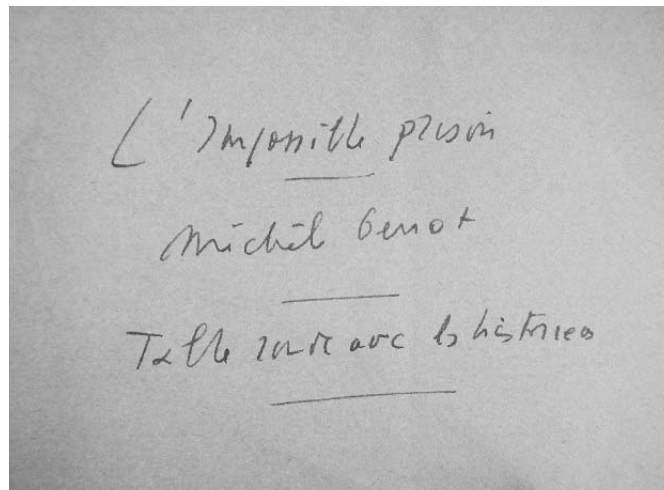 L'Impossible prison
Michèle Perrot
Table ronde avec les historiens